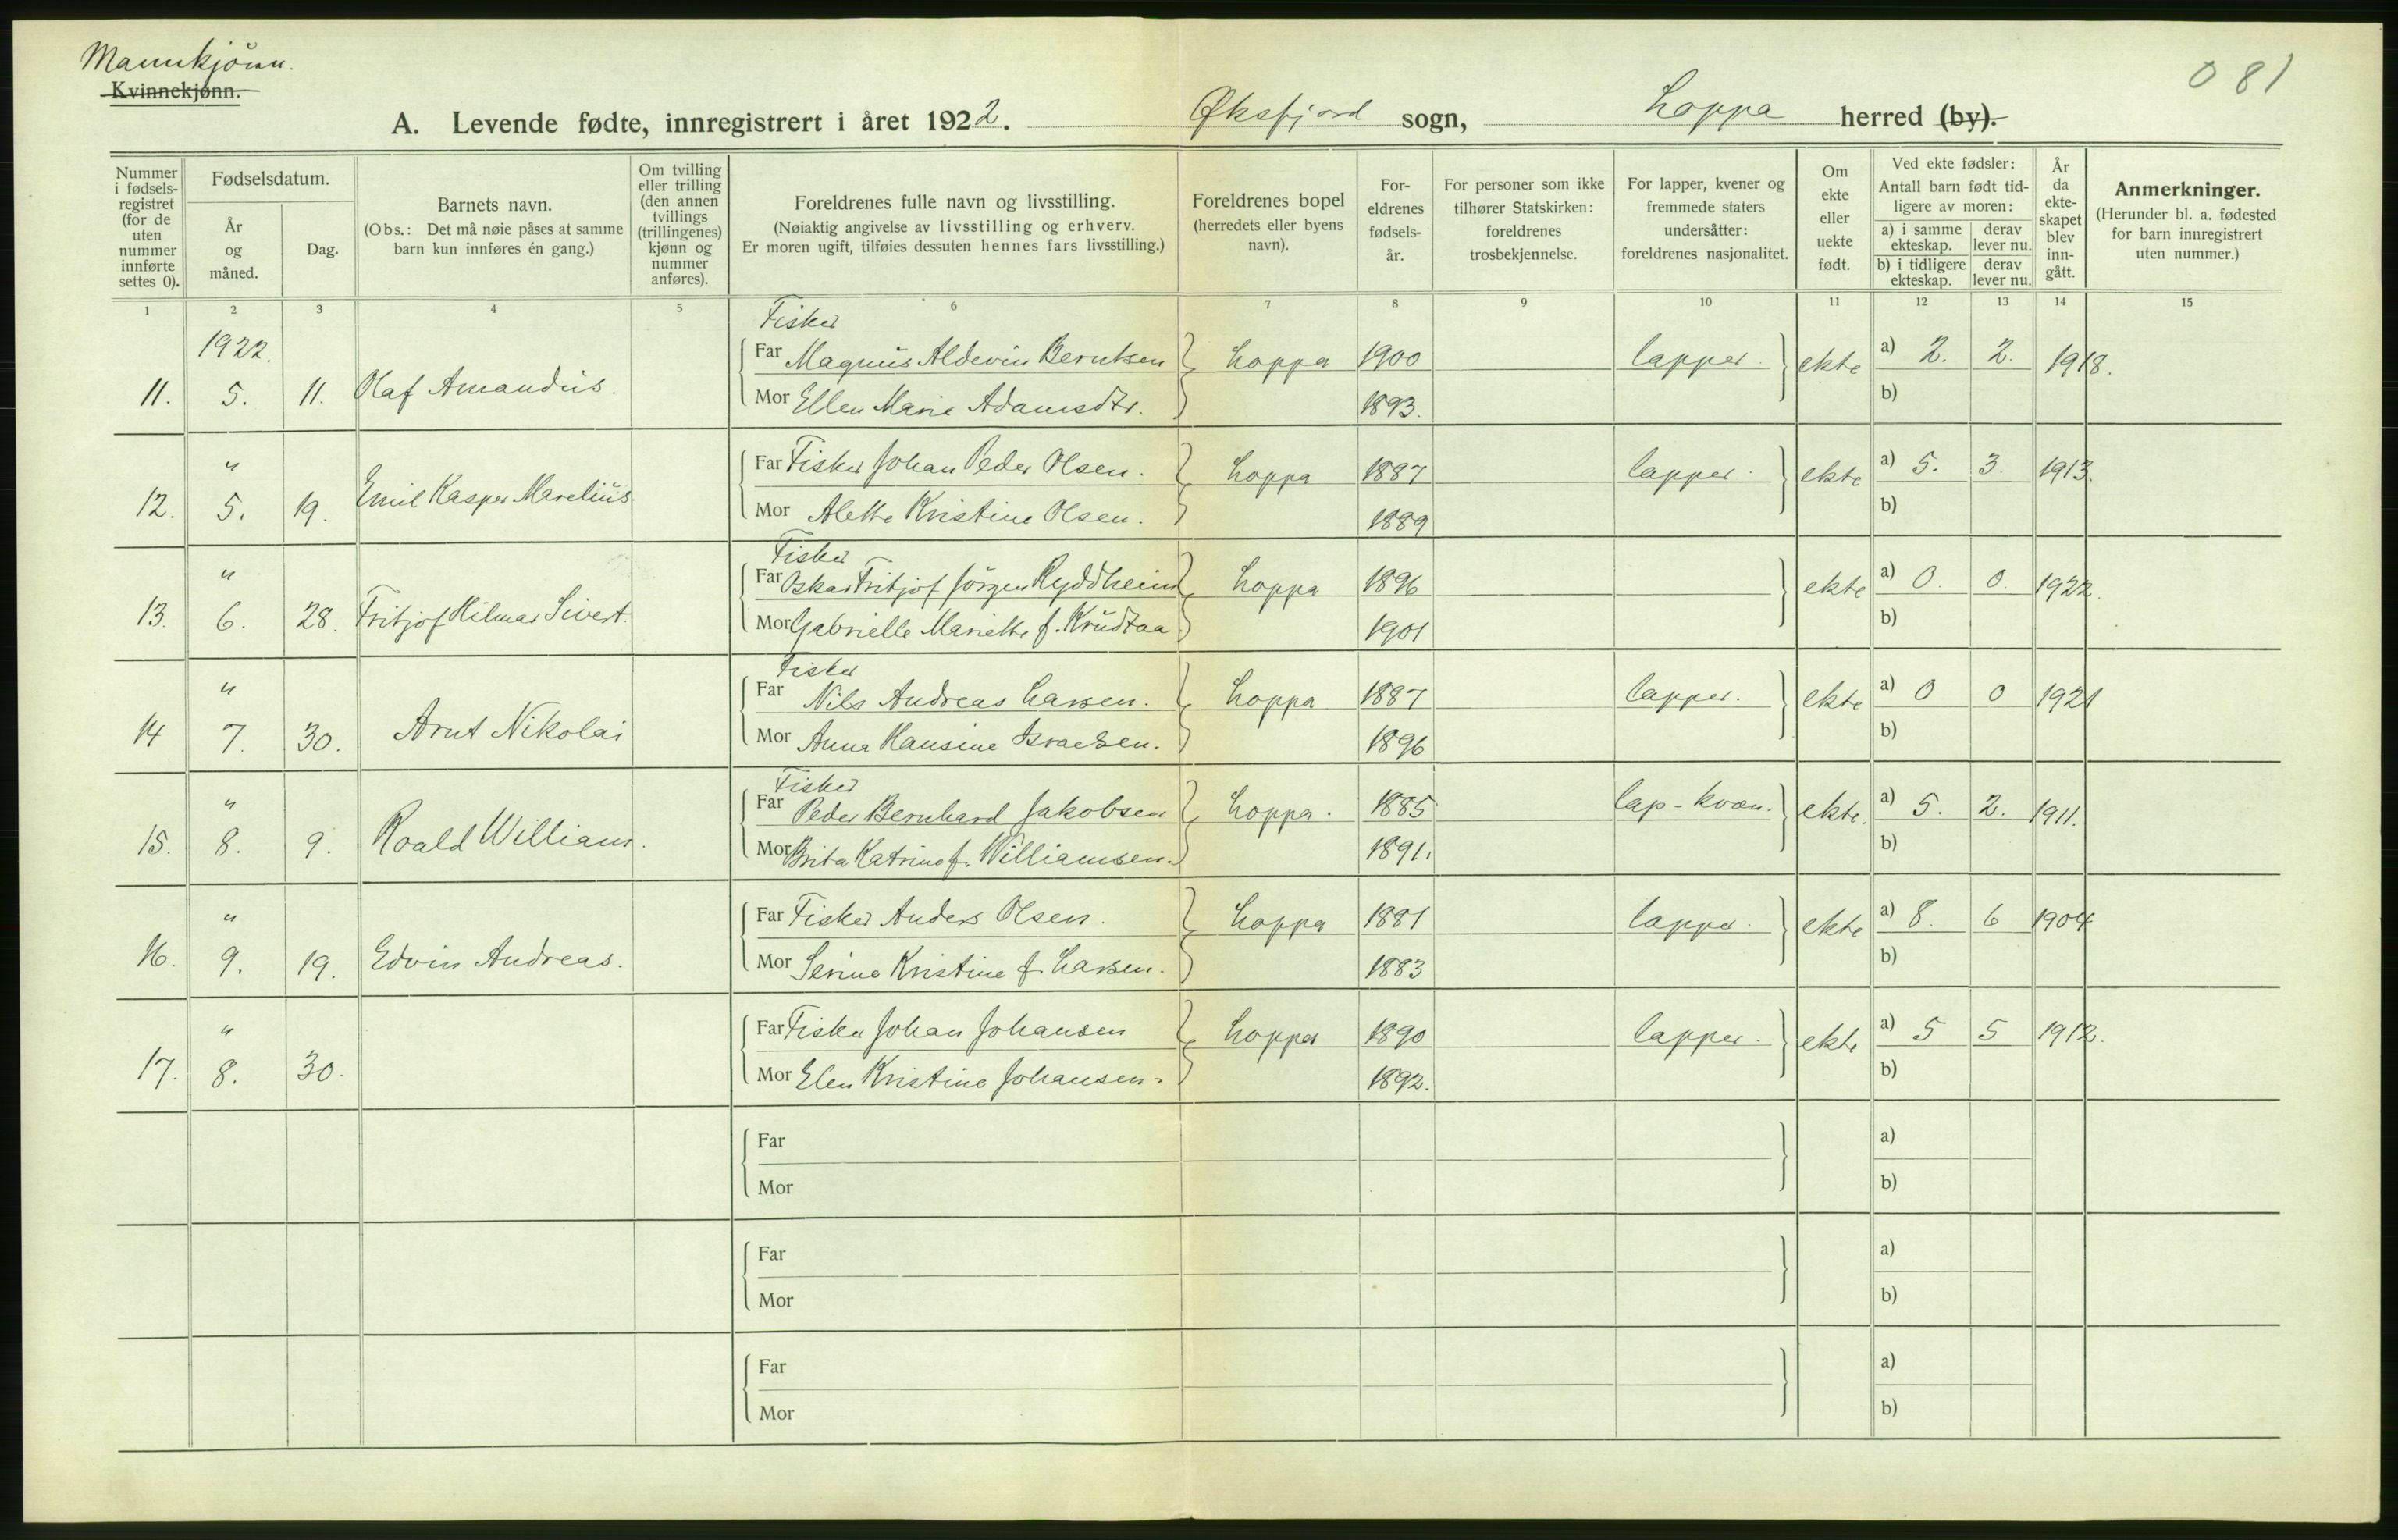 Mannkjönn.
Kvinnekjønn.
081
A. Levende fødte, innregistrert i året 1922. Øksfjord sogn, Loppa herred (by).
Nummer i fødsels-registret (for de uten nummer innførte settes 0).
Fødselsdatum.
År og måned.
Dag.
Barnets navn.
(Obs.: Det må nøie påses at samme barn kun innføres én gang.)
Om tvilling eller trilling (den annen tvillings (trillingenes) kjønn og nummer anføres).
Foreldrenes fulle navn og livsstilling.
(Nøiaktig angivelse av livsstilling og erhverv.
Er moren ugift, tilføies dessuten hennes fars livsstilling.)
Foreldrenes bopel (herredets eller byens navn).
For-eldrenes fødsels-år.
For personer som ikke tilhører Statskirken: foreldrenes trosbekjennelse.
For lapper, kvener og fremmede staters undersåtter: foreldrenes nasjonalitet.
Om ekte eller uekte født.
Ved ekte fødsler:
Antall barn født tid-ligere av moren:
a) i samme ekteskap. derav lever nu.
b) i tidligere ekteskap. derav lever nu.
År da ekte-skapet blev inn-gått.
Anmerkninger.
(Herunder bl. a. fødested for barn innregistrert uten nummer.)
1 2 3 4 5 6 7 8 9 10 11 12 13 14 15
1922.
Fisker
11. 5. 11. Olaf Amandus.
Far Magnus Aldevin Berntsen Loppa 1900 lapper. ekte a) 2. 2. 1918.
Mor Ellen Marie Adamsdtr. 1893. b)
"
12. 5. 19. Emil Kasper Marelius.
Far Fisker Johan Peder Olsen. Loppa 1887 lapper. ekte a) 5. 3. 1913.
Mor Alette Kristine Olsen. 1889 b)
"
Fisker
13. 6. 28. Fritjof Hilmar Sivert.
Far Oskar Fritjof Jörgen Ryddheim Loppa 1896 ekte a) 0. 0. 1922.
Mor Gabrielle Mariette f. Krudtaa 1901 b)
"
Fisker
14 7. 30. Arnt Nikolai
Far Nils Andreas Larsen. Loppa 1887 lapper. ekte a) 0 0 1921
Mor Anna Hansine Israelsen. 1896 b)
"
Fisker
15. 8. 9. Roald William.
Far Peder Bernhard Jakobsen Loppa. 1885 lap-kvæn. ekte. a) 5. 2. 1911.
Mor Brita Katrine f. Williamsen. 1891. b)
"
16. 9. 19. Edvin Andreas.
Far Fisker Anders Olsen. Loppa 1881 lapper. ekte a) 8. 6 1904
Mor Serina Kristine f. Larsen. 1883 b)
"
17. 8. 30.
Far Fisker Johan Johansen Loppa 1890 lapper. ekte a) 5 5 1912.
Mor Elen Kristine Johansen. 1892. b)
Far a)
Mor b)
Far a)
Mor b)
Far a)
Mor b)